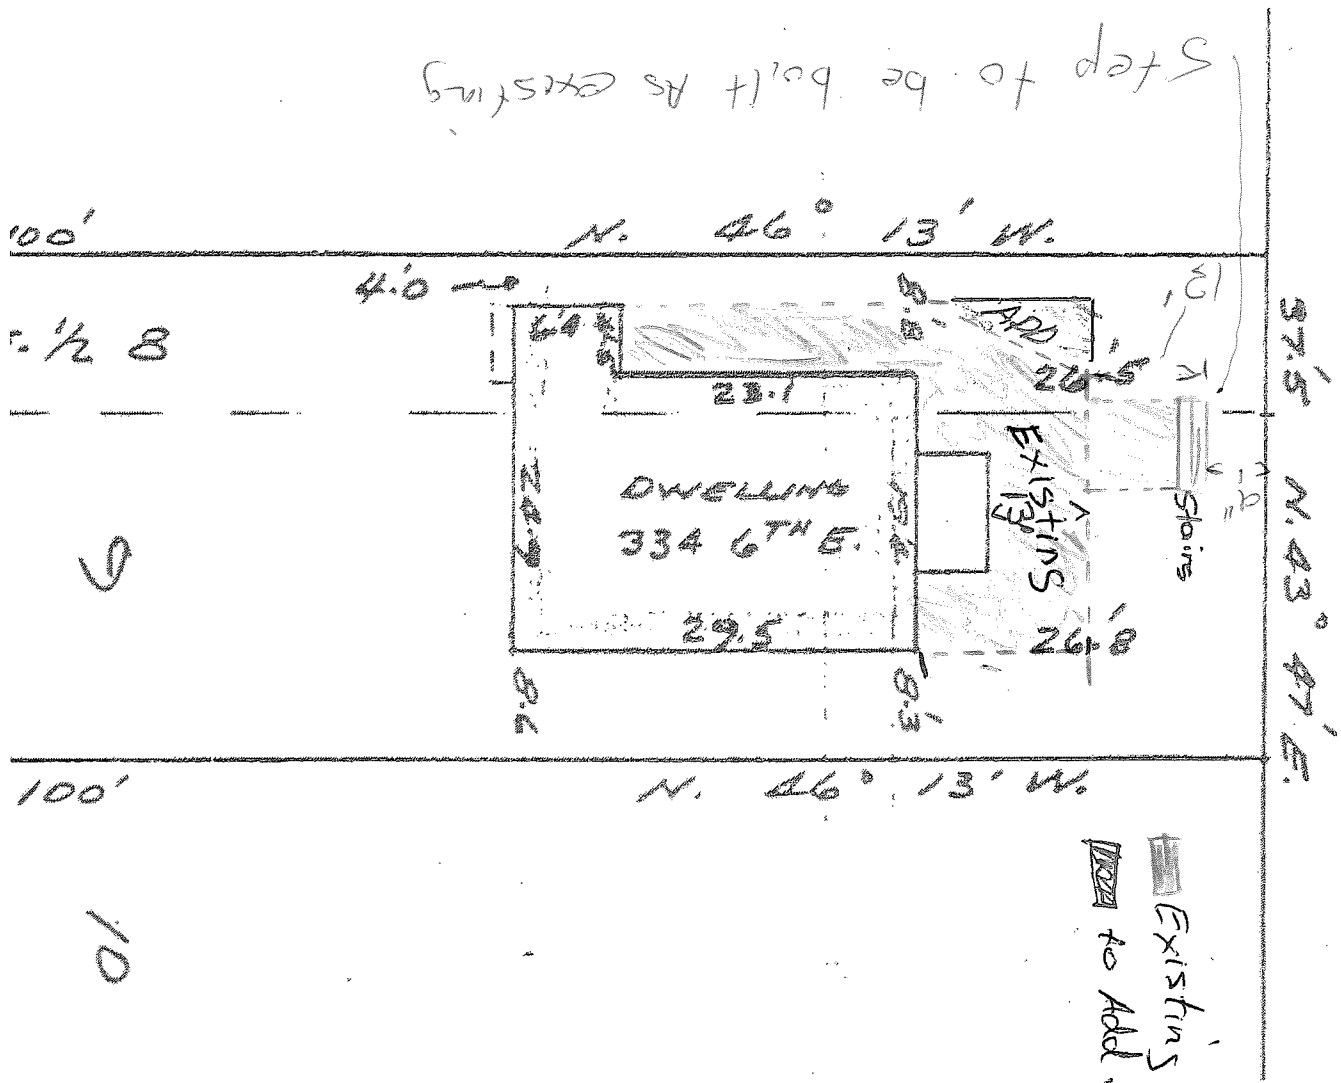 Step to be built As existing
100'
N. 46° 13' W.
4.'0
13'
6.4
4.5
8.'8
ADD
37.'5
. 1/2 8
23.1
26.'5
DWELLING
334 6TH E.
Existing
13'
Stairs
N. 43° 47' E.
9
29.5
26.'8
8.6
8.'3
100'
N. 46° 13' W.
10
Existing
to Add